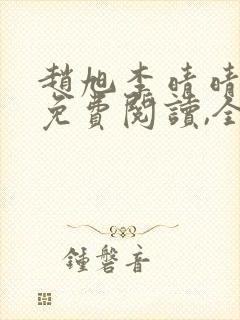 趙旭李晴晴
免費閱讀,全
鍾磬音